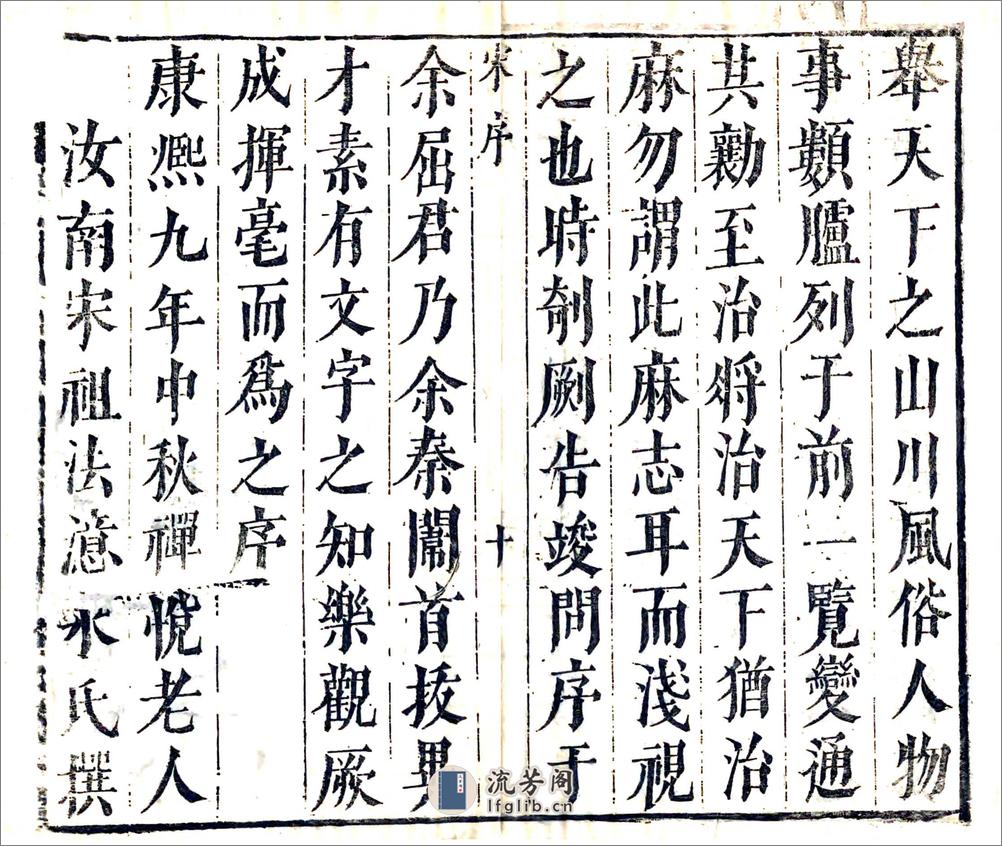 舉天下之山川風俗人物
事類臚列于前一覽變通
共勷至治將治天下猶治
麻勿謂此麻志耳而淺視
之也時剞劂告竣問序于
宋序 十
余屈君乃余秦闈首拔異
才素有文字之知樂觀厥
成揮毫而爲之序
康熙九年中秋禪悅老人
汝南宋祖法意水氏撰
流芳阁
lfglib.cn